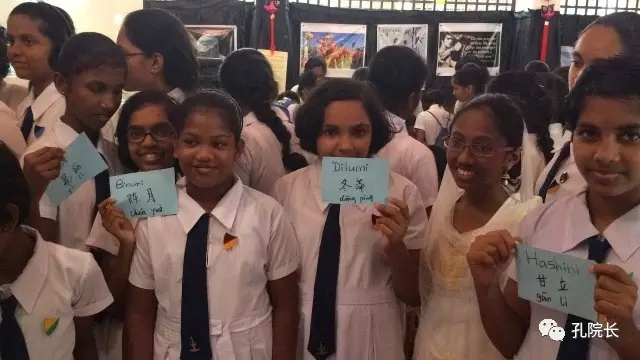 Binuri
陈月
chén yuè
Dilumi
冬萍
dōng píng
Hashini
甘立
gān lì
孔院长